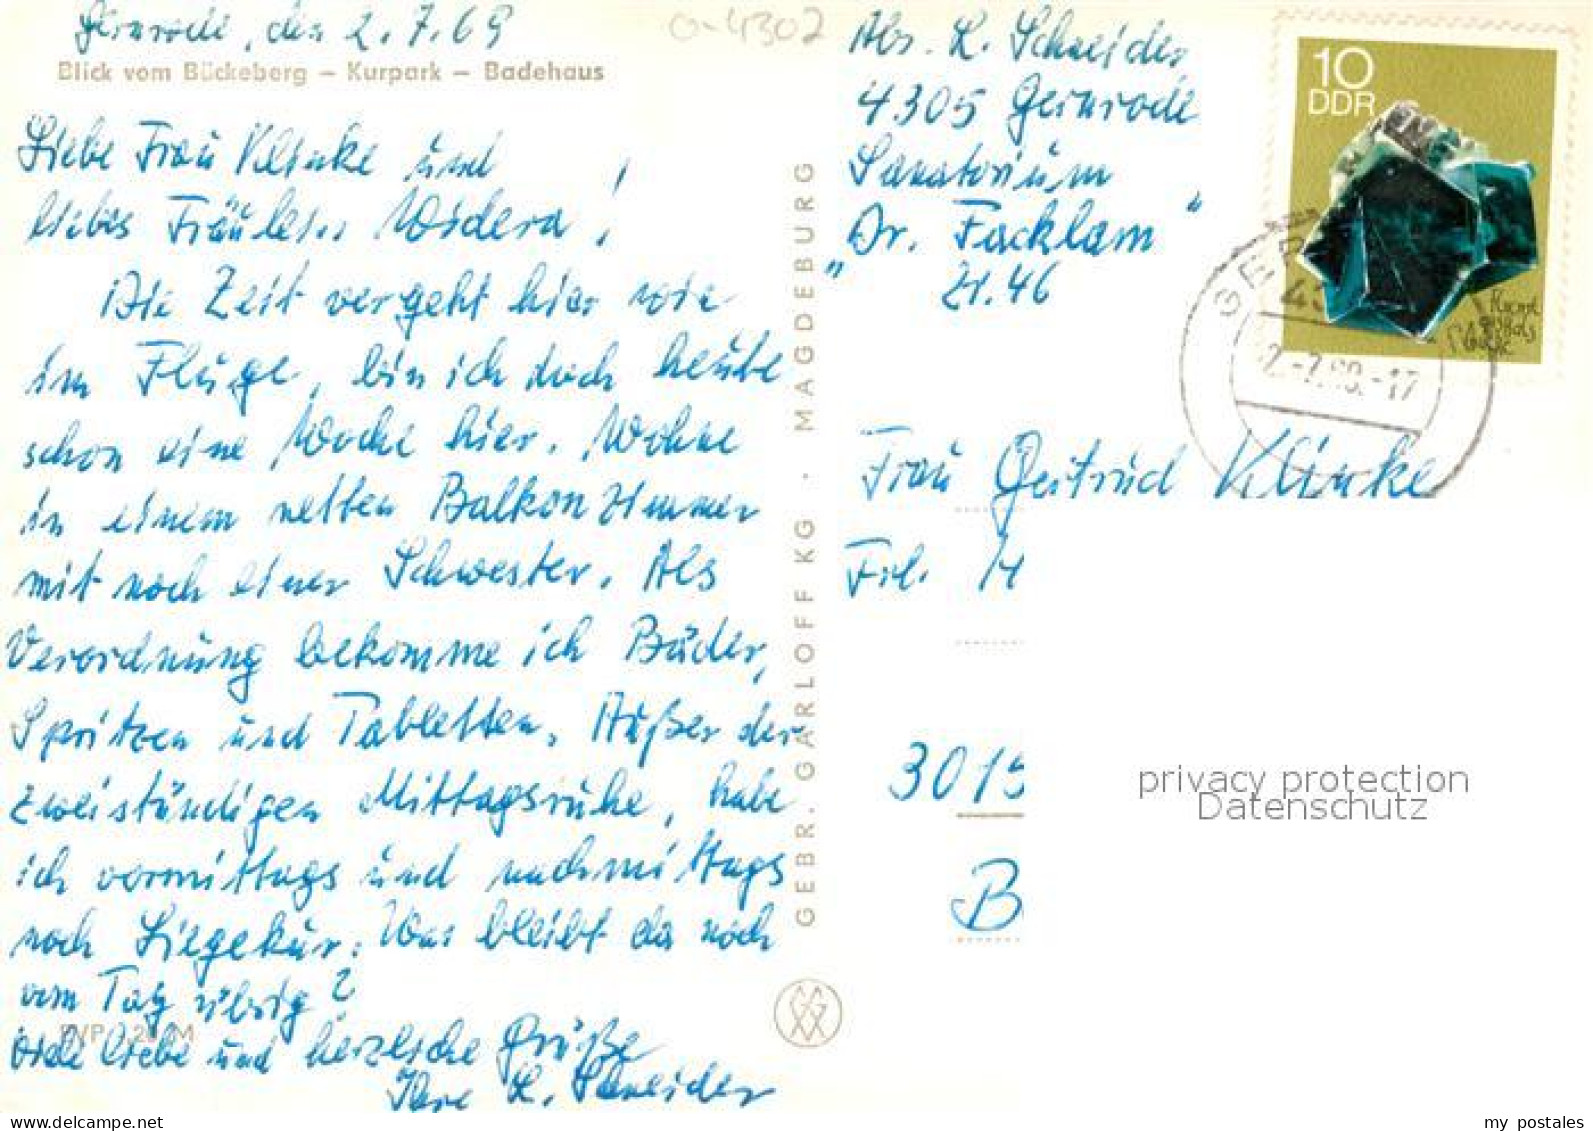 Gernrode, den 2.7.69
Blick vom Bückeberg – Kurpark – Badehaus
Liebe Frau Klinke und
liebes Fräulein Widera!
Die Zeit vergeht hier wie
im Fluge, bin ich doch heute
schon eine Woche hier. Wohne
in einem netten Balkonzimmer
mit noch einer Schwester. Als
Verordnung bekomme ich Bäder,
Spritzen und Tabletten. Außer der
zweistündigen Mittagsruhe, habe
ich vormittags und nachmittags
noch Liegekur. Was bleibt da noch
vom Tag übrig?
Viele liebe und herzliche Grüße
Ihre L. Schneider
GEBR. GARLOFF KG · MAGDEBURG
0-4302
Abs. L. Schneider
4305 Gernrode
Sanatorium
"Dr. Facklam"
Zi. 46
10
DDR
2.-7.69.-17
Frau Gertrud Klinke
Frl.
3015
B
privacy protection
Datenschutz
delcampe.net
my_postales